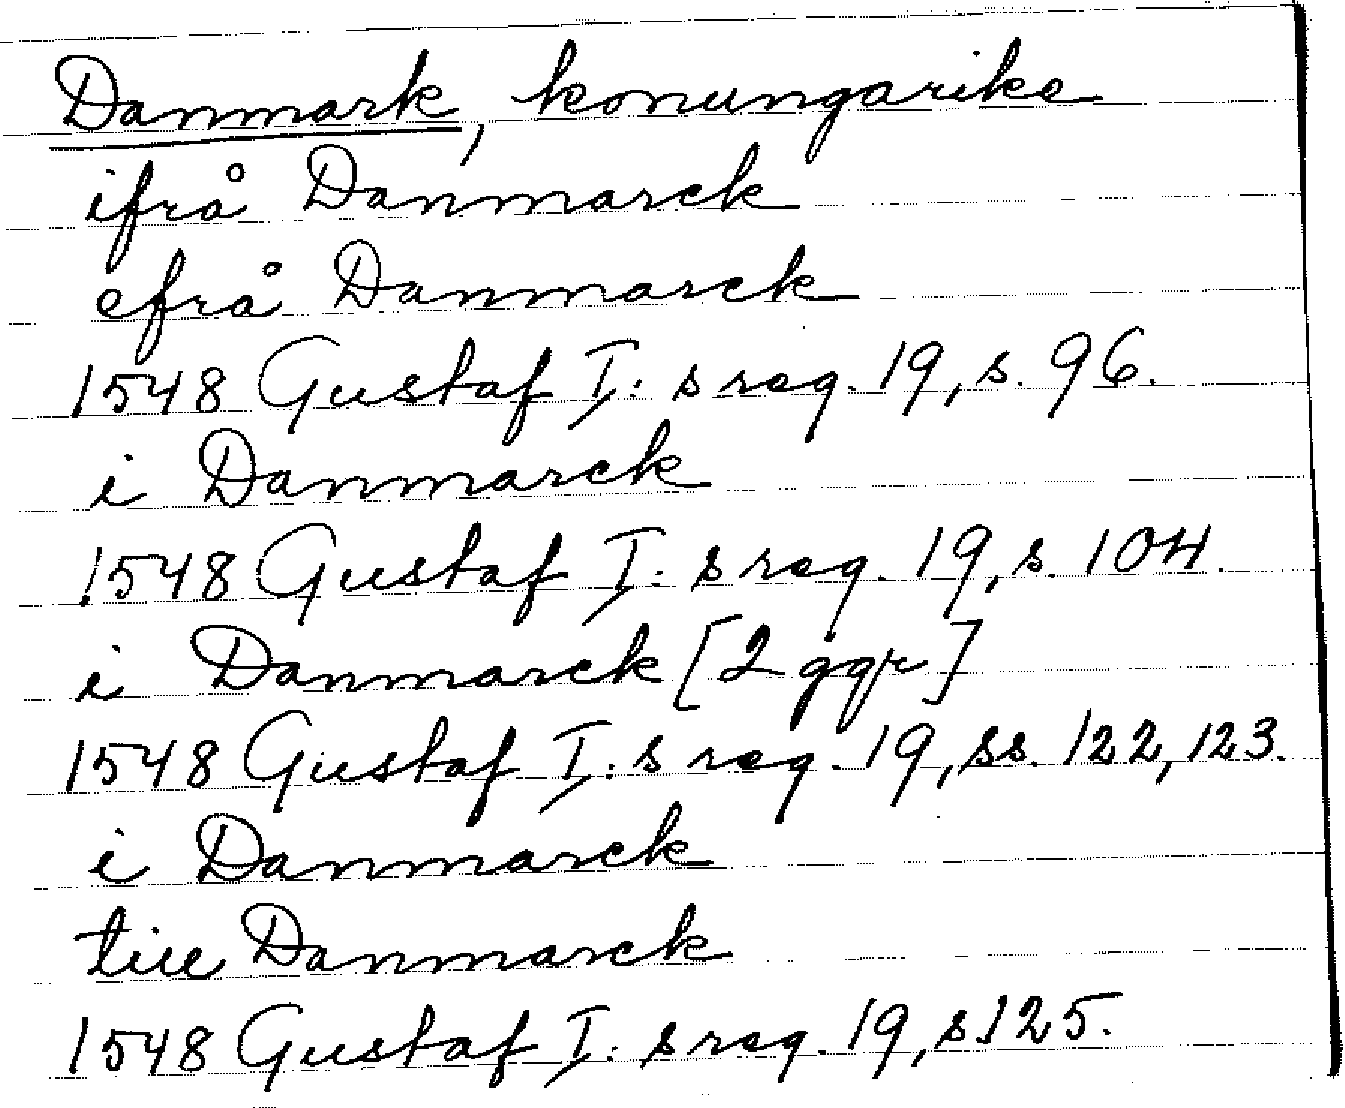 Danmark, konungarike
ifrå Danmarck
efrå Danmarck
1548 Gustaf I: s reg. 19, s. 96.
i Danmarck
1548 Gustaf I: s reg. 19, s. 104.
i Danmarck [2 ggr]
1548 Gustaf I: s reg. 19, ss. 122, 123.
i Danmarck
till Danmarck
1548 Gustaf I: s reg. 19, s. 125.